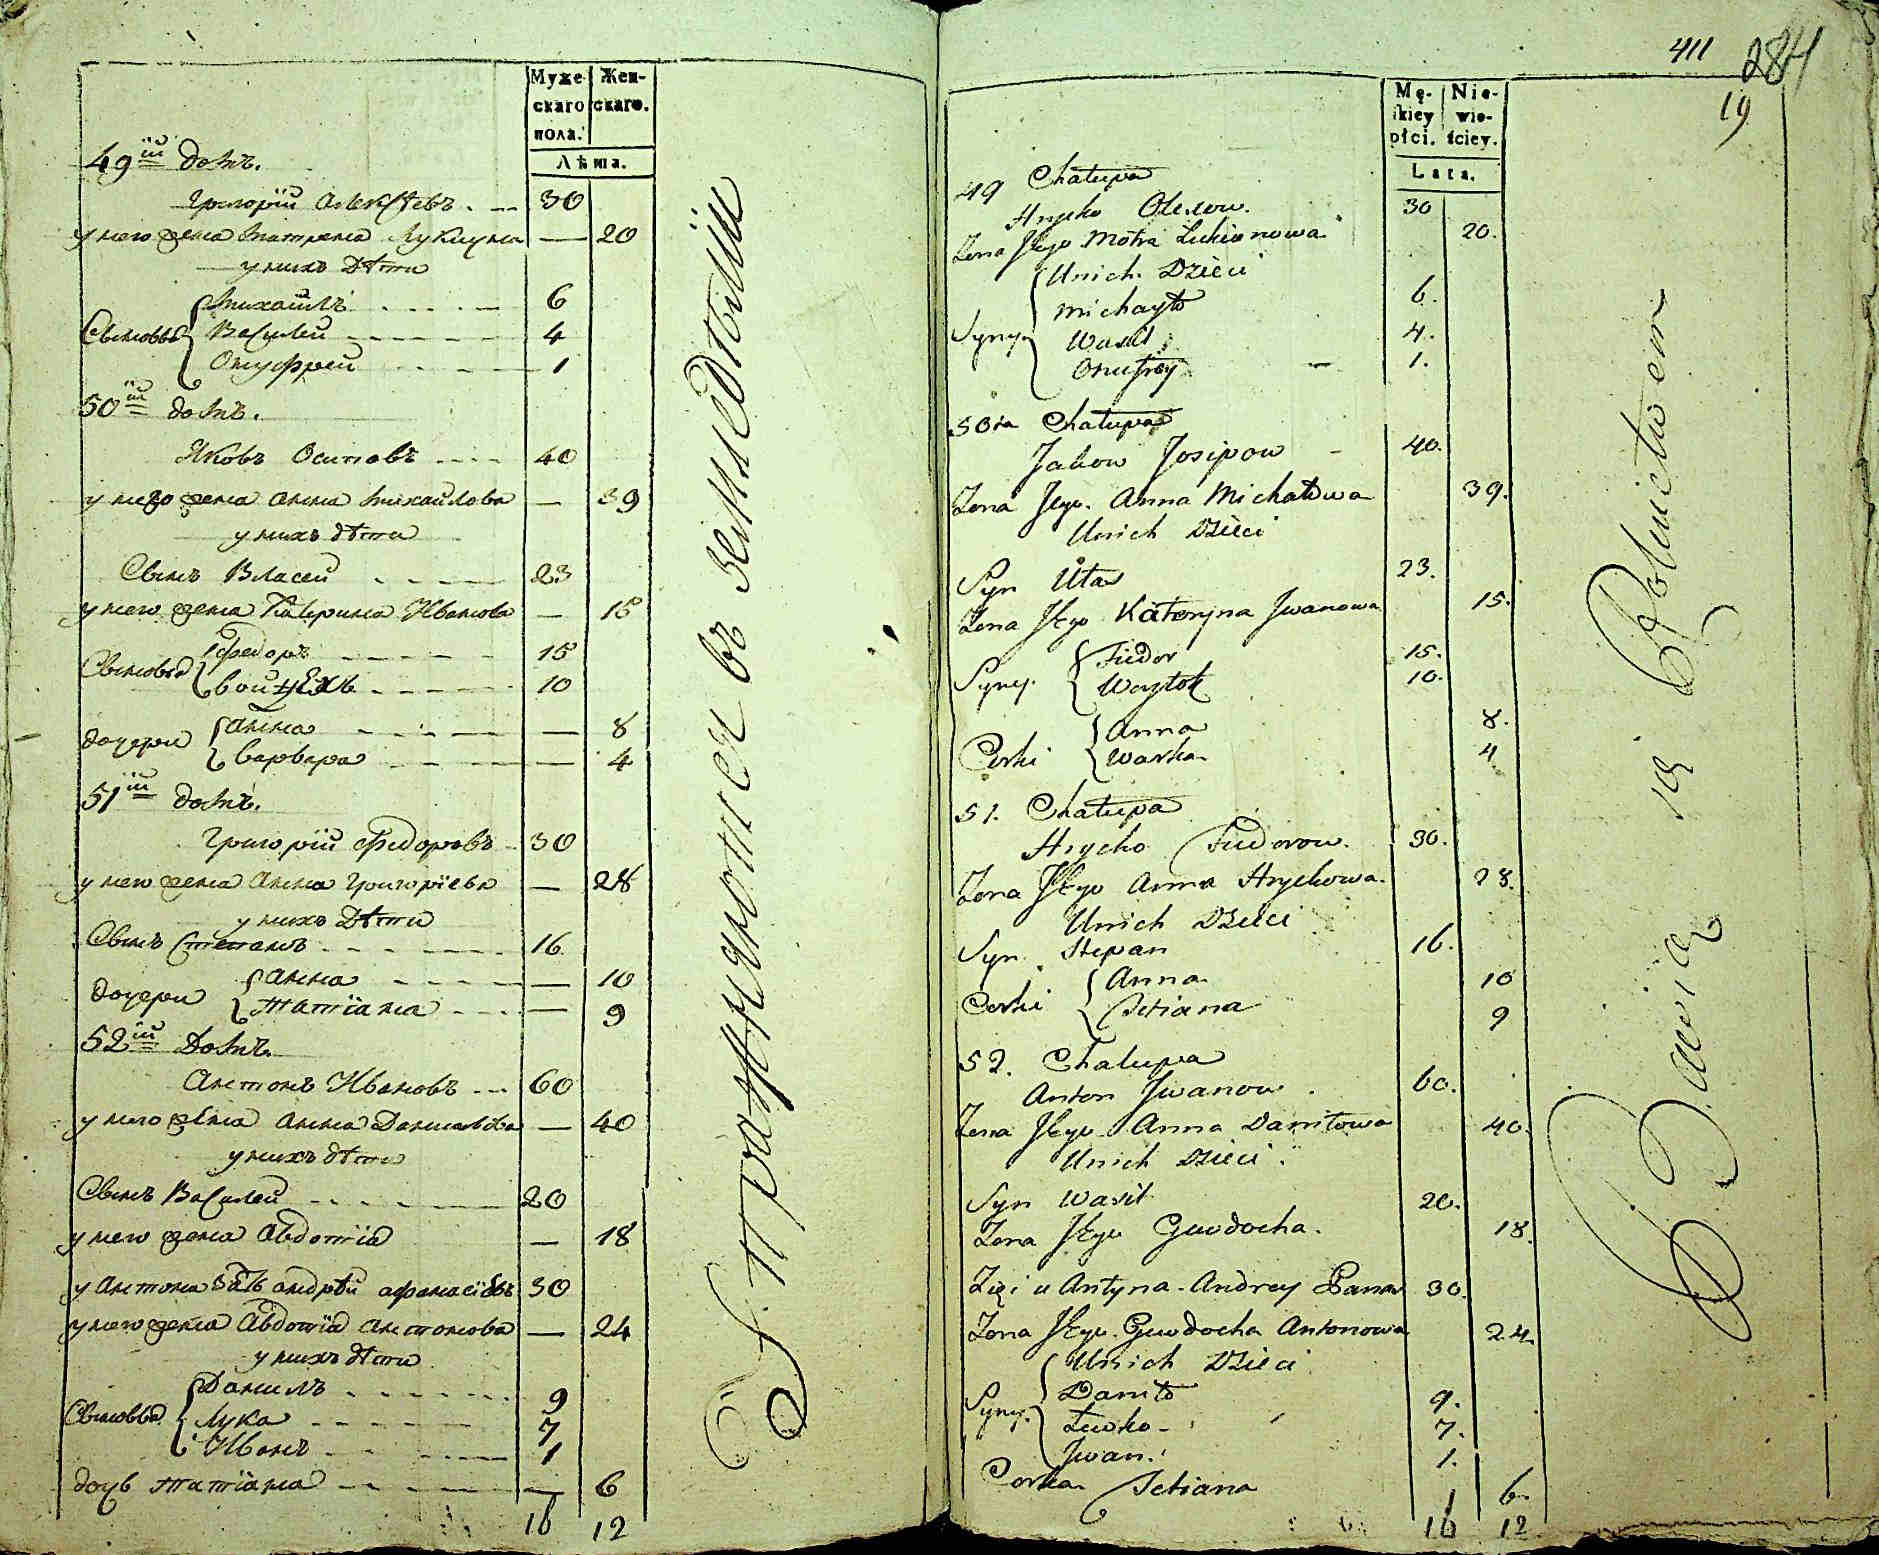 Муже-
скаго
пола.
Жен-
скаго.
Лѣта.
49ій домъ.
Григорій Алексѣевъ. 30
у него жена Матрена Лукиянова — 20
у нихъ дѣти
Сыновья
Михайлъ 6
Василей 4
Онуфрей 1
50ій домъ.
Яковъ Осиповъ 40
у него жена Анна Михайлова — 39
у нихъ дѣти
Сынъ Власей 23
у него жена Катерина Иванова — 15
Сыновья
Федоръ 15
Войцехъ 10
дочери
Анна — 8
Варвара — 4
51ій домъ.
Григорій Федоровъ 30
у него жена Анна Григоріева — 28
у нихъ дѣти
Сынъ Степанъ 16
дочери
Анна — 10
Татіана — 9
52ій домъ.
Антонъ Ивановъ 60
у него жена Анна Данилова — 40
у нихъ дѣти
Сынъ Василей 20
у него жена Авдотія — 18
у Антона зять Андрѣй Афанасіевъ 30
у него жена Авдотія Антонова — 24
у нихъ дѣти
Сыновья
Данилъ 9
Лука 7
Иванъ 1
дочь Татіана — 6
16 12
Упражняются въ земледѣліи
411 284
19
Mę-
skiey
płci.
Nie-
wie-
ściey.
Lata.
49 Chałupa
Hryćko Olexow. 30
Żona Jego Motra Łukianowa 20.
Unich Dzieci
Syny.
Michayło 6.
Wasil 4.
Onufrey 1.
50ta Chałupa
Jakow Josipow 40.
Żona Jego Anna Michałowa 39.
Unich Dzieci
Syn Ułas 23.
Żona Jego Kateryna Jwanowa 15.
Syny.
Fiedor 15.
Woytek 10.
Corki
Anna 8.
Warka 4
51. Chałupa
Hryćko Fiedorow. 30.
Żona Jego Anna Hryćkowa. 28.
Unich Dzieci
Syn Stepan 16.
Corki
Anna 10
Tetiana 9
52. Chałupa
Anton Jwanow 60.
Żona Jego Anna Daniłowa 40.
Unich Dzieci.
Syn Wasil 20.
Żona Jego Guwdocha. 18.
Zięć u Antyna Andrey Panas 30.
Żona Jego Guwdocha Antonowa 24.
Unich Dzieci
Syny.
Daniło 9.
Łuwko 7.
Jwan. 1.
Corka Tetiana 6.
16 12
Bawią się Rolnictwem